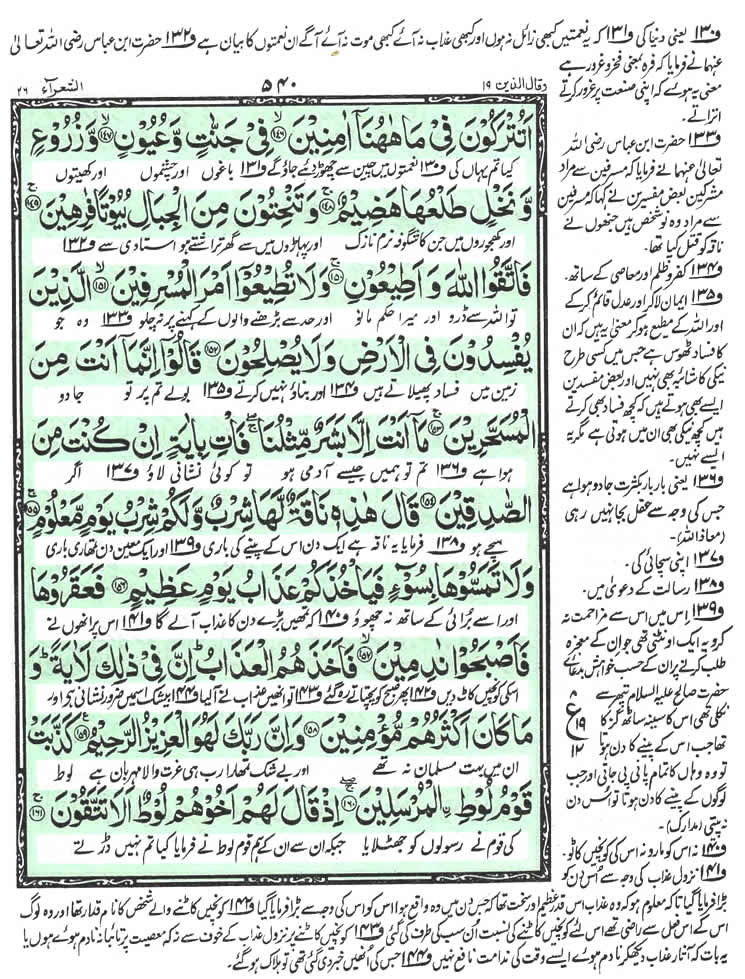 و۱۳۰ یعنی دنیا کی و۱۳۱ کہ یہ نعمتیں کبھی زائل نہ ہوں اور کبھی عذاب نہ آئے کبھی موت نہ آئے آگے ان نعمتوں کا بیان ہے و۱۳۲ حضرت ابن عباس رضی اللہ تعالیٰ
عنہما نے فرمایا کہ فرہ بمعنی فخر و غرور ہے
معنی یہ ہوئے کہ اپنی صنعت پر غرور کرتے
اتراتے۔
الشعرآء ۲۶
۵۴۰
وقال الذین ۱۹
اَتُتْرَكُوْنَ فِیْ مَا هٰهُنَاۤ اٰمِنِیْنَ ﴿۱۴۶﴾ فِیْ جَنّٰتٍ وَّعُیُوْنٍ ﴿۱۴۷﴾ وَّزُرُوْعٍ
کیا تم یہاں کی و۱۳۰ نعمتوں میں چین سے چھوڑ دیئے جاؤ گے و۱۳۱ باغوں اور چشموں اور کھیتوں
وَّنَخْلٍ طَلْعُهَا هَضِیْمٌ ﴿۱۴۸﴾ وَتَنْحِتُوْنَ مِنَ الْجِبَالِ بُیُوْتًا فٰرِهِیْنَ ﴿۱۴۹﴾
اور کھجوروں میں جن کا شگوفہ نرم نازک اور پہاڑوں میں سے گھر تراشتے ہو استادی سے و۱۳۲
فَاتَّقُوا اللّٰهَ وَاَطِیْعُوْنِ ﴿۱۵۰﴾ وَلَا تُطِیْعُوْۤا اَمْرَ الْمُسْرِفِیْنَ ﴿۱۵۱﴾ الَّذِیْنَ
تو اللہ سے ڈرو اور میرا حکم مانو اور حد سے بڑھنے والوں کے کہنے پر نہ چلو و۱۳۳ وہ جو
یُفْسِدُوْنَ فِی الْاَرْضِ وَلَا یُصْلِحُوْنَ ﴿۱۵۲﴾ قَالُوْۤا اِنَّمَاۤ اَنْتَ مِنَ
زمین میں فساد پھیلاتے ہیں و۱۳۴ اور بناؤ نہیں کرتے و۱۳۵ بولے تم پر تو جادو
الْمُسَحَّرِیْنَ ﴿۱۵۳﴾ مَاۤ اَنْتَ اِلَّا بَشَرٌ مِّثْلُنَا فَاْتِ بِاٰیَةٍ اِنْ كُنْتَ مِنَ
ہوا ہے و۱۳۶ تم تو ہمیں جیسے آدمی ہو تو کوئی نشانی لاؤ و۱۳۷ اگر
الصّٰدِقِیْنَ ﴿۱۵۴﴾ قَالَ هٰذِهٖ نَاقَةٌ لَّهَا شِرْبٌ وَّلَكُمْ شِرْبُ یَوْمٍ مَّعْلُوْمٍ ﴿۱۵۵﴾
سچے ہو و۱۳۸ فرمایا یہ ناقہ ہے ایک دن اس کے پینے کی باری و۱۳۹ اور ایک معین دن تمہاری باری
وَلَا تَمَسُّوْهَا بِسُوْٓءٍ فَیَاْخُذَكُمْ عَذَابُ یَوْمٍ عَظِیْمٍ ﴿۱۵۶﴾ فَعَقَرُوْهَا
اور اسے برائی کے ساتھ نہ چھوؤ و۱۴۰ کہ تمہیں بڑے دن کا عذاب آلے گا و۱۴۱ اس پر انھوں نے
فَاَصْبَحُوْا نٰدِمِیْنَ ﴿۱۵۷﴾ فَاَخَذَهُمُ الْعَذَابُ اِنَّ فِیْ ذٰلِكَ لَاٰیَةً وَ
اسکی کونچیں کاٹ دیں و۱۴۲ پھر صبح کو پچتاتے رہ گئے و۱۴۳ تو انھیں عذاب نے آلیا و۱۴۴ بیشک اسمیں ضرور نشانی ہے اور
مَا كَانَ اَكْثَرُهُمْ مُّؤْمِنِیْنَ ﴿۱۵۸﴾ وَاِنَّ رَبَّكَ لَهُوَ الْعَزِیْزُ الرَّحِیْمُ ﴿۱۵۹﴾ كَذَّبَتْ
ان میں بہت مسلمان نہ تھے اور بے شک تمہارا رب ہی عزت والا مہربان ہے لوط
قَوْمُ لُوْطِ ِ۟الْمُرْسَلِیْنَ ﴿۱۶۰﴾ اِذْ قَالَ لَهُمْ اَخُوْهُمْ لُوْطٌ اَلَا تَتَّقُوْنَ ﴿۱۶۱﴾
کی قوم نے رسولوں کو جھٹلایا جبکہ ان سے ان کے ہم قوم لوط نے فرمایا کیا تم نہیں ڈرتے
و۱۳۳ حضرت ابن عباس رضی اللہ
تعالیٰ عنہما نے فرمایا کہ مسرفین سے مراد
مشرکین بعض مفسرین نے کہا کہ مسرفین
سے مراد وہ نو شخص ہیں جنھوں نے
ناقہ کو قتل کیا تھا۔
و۱۳۴ کفر و ظلم اور معاصی کے ساتھ۔
و۱۳۵ ایمان لا کر اور عدل قائم کر کے
اور اللہ کے مطیع ہو کر معنی یہ ہیں کہ ان
کا فساد ٹھوس ہے جس میں کسی طرح
نیکی کا شائبہ بھی نہیں اور بعض مفسدین
ایسے بھی ہوتے ہیں کہ کچھ فساد بھی کرتے
ہیں کچھ نیکی بھی ان میں ہوتی ہے مگر یہ
ایسے نہیں۔
و۱۳۶ یعنی بار بار بکثرت جادو ہوا ہے
جس کی وجہ سے عقل بجا نہیں رہی
(معاذ اللہ)۔
و۱۳۷ اپنی سچائی کی۔
و۱۳۸ رسالت کے دعویٰ میں۔
و۱۳۹ اس میں اس سے مزاحمت نہ
کرو یہ ایک اونٹنی تھی جو ان کے معجزہ
طلب کرنے پر ان کے حسب خواہش بدعائے
حضرت صالح علیہ السلام پتھر سے
نکلی تھی اس کا سینہ ساٹھ گز کا
تھا جب اس کے پینے کا دن ہوتا
تو وہ وہاں کا تمام پانی پی جاتی اور جب
لوگوں کے پینے کا دن ہوتا تو اس دن
نہ پیتی (مدارک)۔
۸
ع
۱۹
۱۲
و۱۴۰ نہ اس کو مارو نہ اس کی کونچیں کاٹو۔
و۱۴۱ نزول عذاب کی وجہ سے اس دن کو
بڑا فرمایا گیا تاکہ معلوم ہو کہ وہ عذاب اس قدر عظیم اور سخت تھا کہ جس دن میں وہ واقع ہوا اس کو اس کی وجہ سے بڑا فرمایا گیا و۱۴۲ کونچیں کاٹنے والے شخص کا نام قدار تھا اور وہ لوگ
اس کے اس فعل سے راضی تھے اس لئے کونچیں کاٹنے کی نسبت ان سب کی طرف کی گئی و۱۴۳ کونچیں کاٹنے پر نزول عذاب کے خوف سے نہ کہ معصیت پر تائبانہ نادم ہوئے ہوں یا
یہ بات کہ آثار عذاب دیکھ کر نادم ہوئے ایسے وقت کی ندامت نافع نہیں و۱۴۴ جس کی انھیں خبر دی گئی تھی تو ہلاک ہو گئے۔